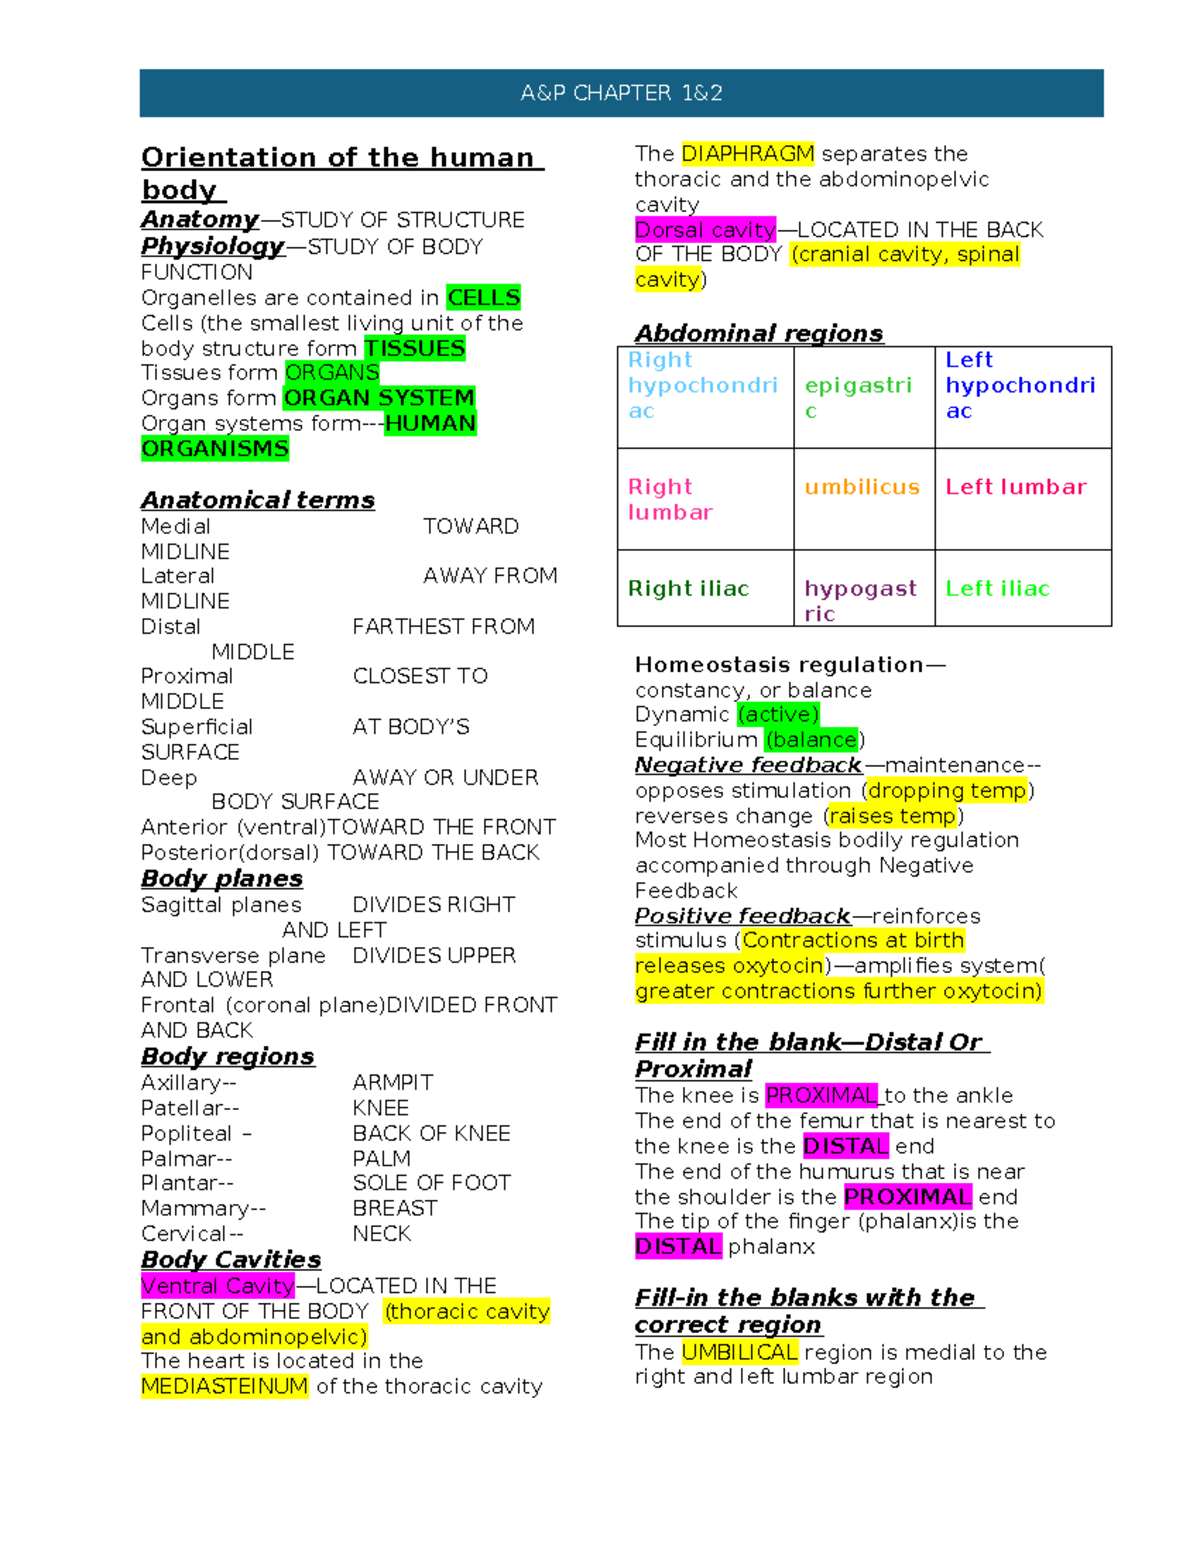 A&P CHAPTER 1&2
Orientation of the human
body
Anatomy—STUDY OF STRUCTURE
Physiology—STUDY OF BODY
FUNCTION
Organelles are contained in CELLS
Cells (the smallest living unit of the
body structure form TISSUES
Tissues form ORGANS
Organs form ORGAN SYSTEM
Organ systems form---HUMAN
ORGANISMS
Anatomical terms
Medial TOWARD
MIDLINE
Lateral AWAY FROM
MIDLINE
Distal FARTHEST FROM
MIDDLE
Proximal CLOSEST TO
MIDDLE
Superficial AT BODY’S
SURFACE
Deep AWAY OR UNDER
BODY SURFACE
Anterior (ventral)TOWARD THE FRONT
Posterior(dorsal) TOWARD THE BACK
Body planes
Sagittal planes DIVIDES RIGHT
AND LEFT
Transverse plane DIVIDES UPPER
AND LOWER
Frontal (coronal plane)DIVIDED FRONT
AND BACK
Body regions
Axillary-- ARMPIT
Patellar-- KNEE
Popliteal – BACK OF KNEE
Palmar-- PALM
Plantar-- SOLE OF FOOT
Mammary-- BREAST
Cervical-- NECK
Body Cavities
Ventral Cavity—LOCATED IN THE
FRONT OF THE BODY (thoracic cavity
and abdominopelvic)
The heart is located in the
MEDIASTEINUM of the thoracic cavity
The DIAPHRAGM separates the
thoracic and the abdominopelvic
cavity
Dorsal cavity—LOCATED IN THE BACK
OF THE BODY (cranial cavity, spinal
cavity)
Abdominal regions
Right
hypochondri
ac
epigastri
c
Left
hypochondri
ac
Right
lumbar
umbilicus
Left lumbar
Right iliac
hypogast
ric
Left iliac
Homeostasis regulation—
constancy, or balance
Dynamic (active)
Equilibrium (balance)
Negative feedback—maintenance--
opposes stimulation (dropping temp)
reverses change (raises temp)
Most Homeostasis bodily regulation
accompanied through Negative
Feedback
Positive feedback—reinforces
stimulus (Contractions at birth
releases oxytocin)—amplifies system(
greater contractions further oxytocin)
Fill in the blank—Distal Or
Proximal
The knee is PROXIMAL_to the ankle
The end of the femur that is nearest to
the knee is the DISTAL end
The end of the humurus that is near
the shoulder is the PROXIMAL end
The tip of the finger (phalanx)is the
DISTAL phalanx
Fill-in the blanks with the
correct region
The UMBILICAL region is medial to the
right and left lumbar region